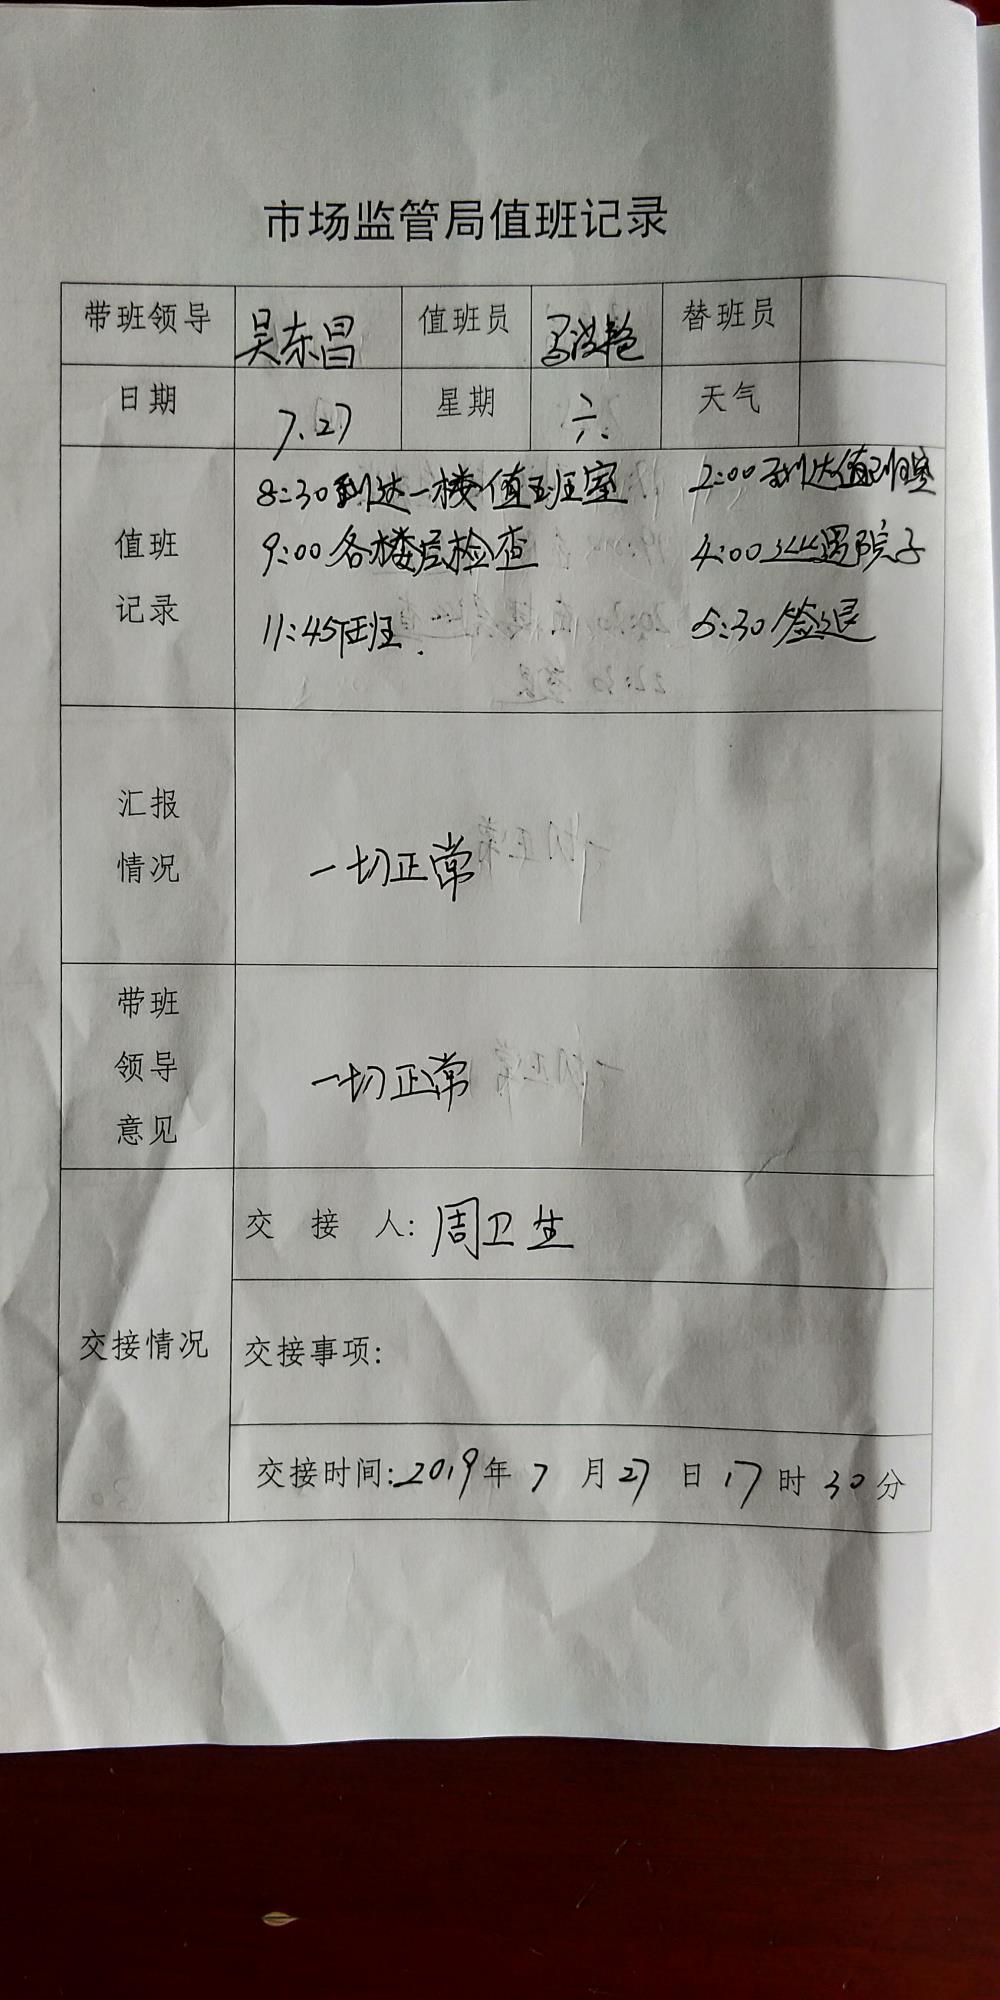 市场监管局值班记录
带班领导 吴东昌 值班员 替班员
日期 7.27 星期 六. 天气
值班记录
8:30到达一楼值班室 2:00到达值班室
9:00各楼层检查 4:00巡逻院子
11:45下班. 5:30签退
汇报情况 一切正常
带班领导意见 一切正常
交接情况
交 接 人: 周卫生
交接事项:
交接时间:2019年 7 月 27 日 17 时 30 分